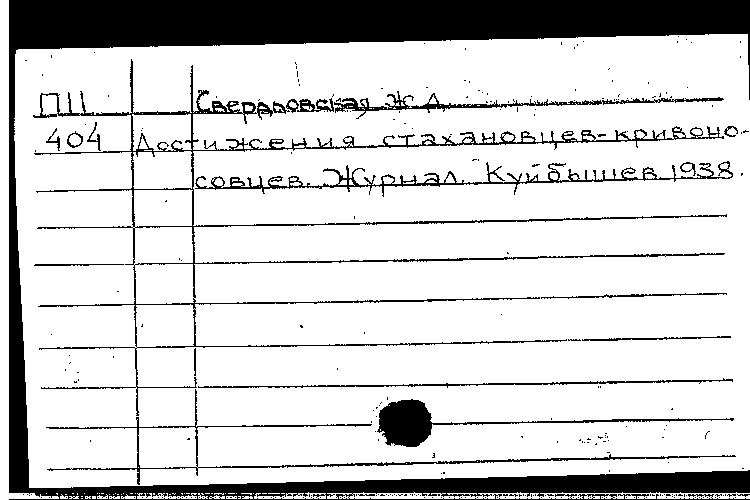 П11 Свердловская Ж Д
404 Достижения стахановцев-кривоно-
совцев. Журнал. Куйбышев 1938.